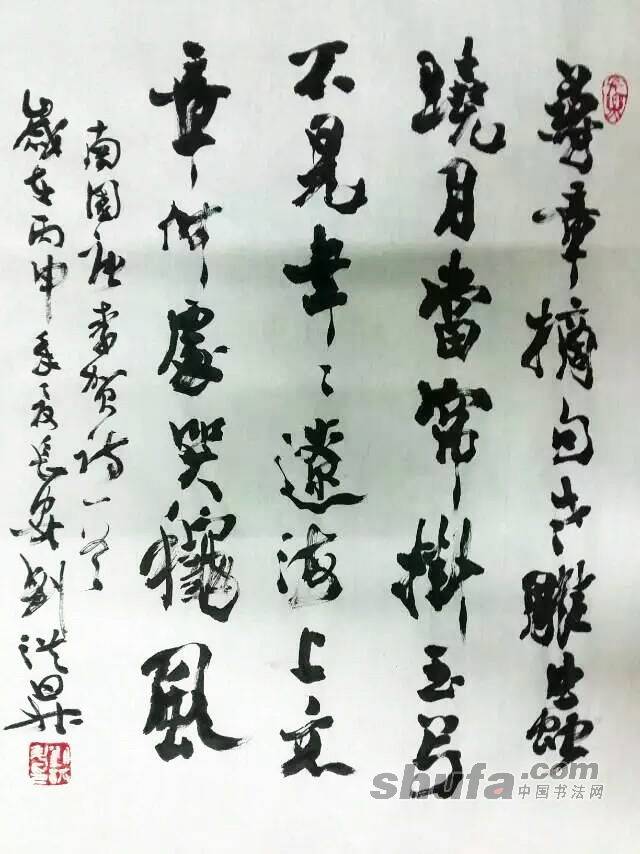 尋章摘句老雕蟲
曉月當帘掛玉弓
不見年〻遼海上文
章何處哭龝風
南園唐李賀詩一首
歲在丙申季夏長安劉洪
shufa.com
中国书法网